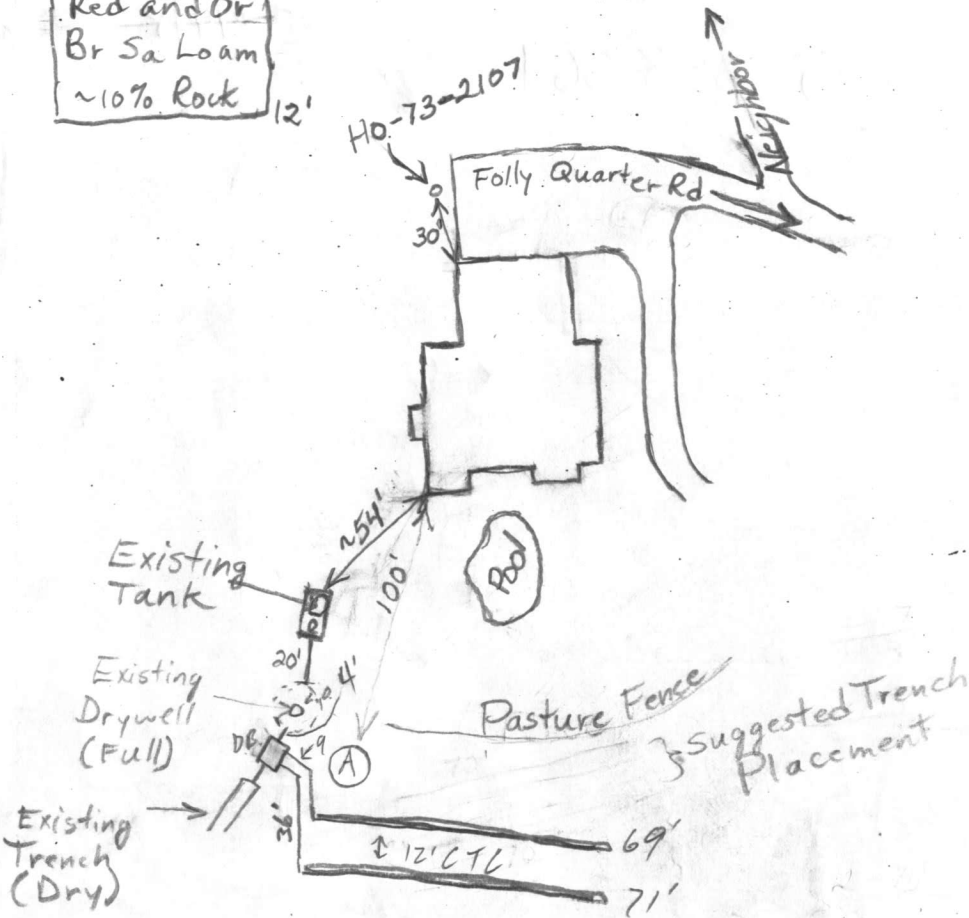 Red and Or
Br Sa Loam
~10% Rock
12'
HO-73-2107
Neighbor
Folly Quarter Rd
30'
~54'
100'
Pool
Existing
Tank
20'
4'
Existing
Drywell
(Full)
DB
9
A
Pasture Fence
Suggested Trench
Placement
Existing
Trench
(Dry)
36'
12' CTC
69'
71'